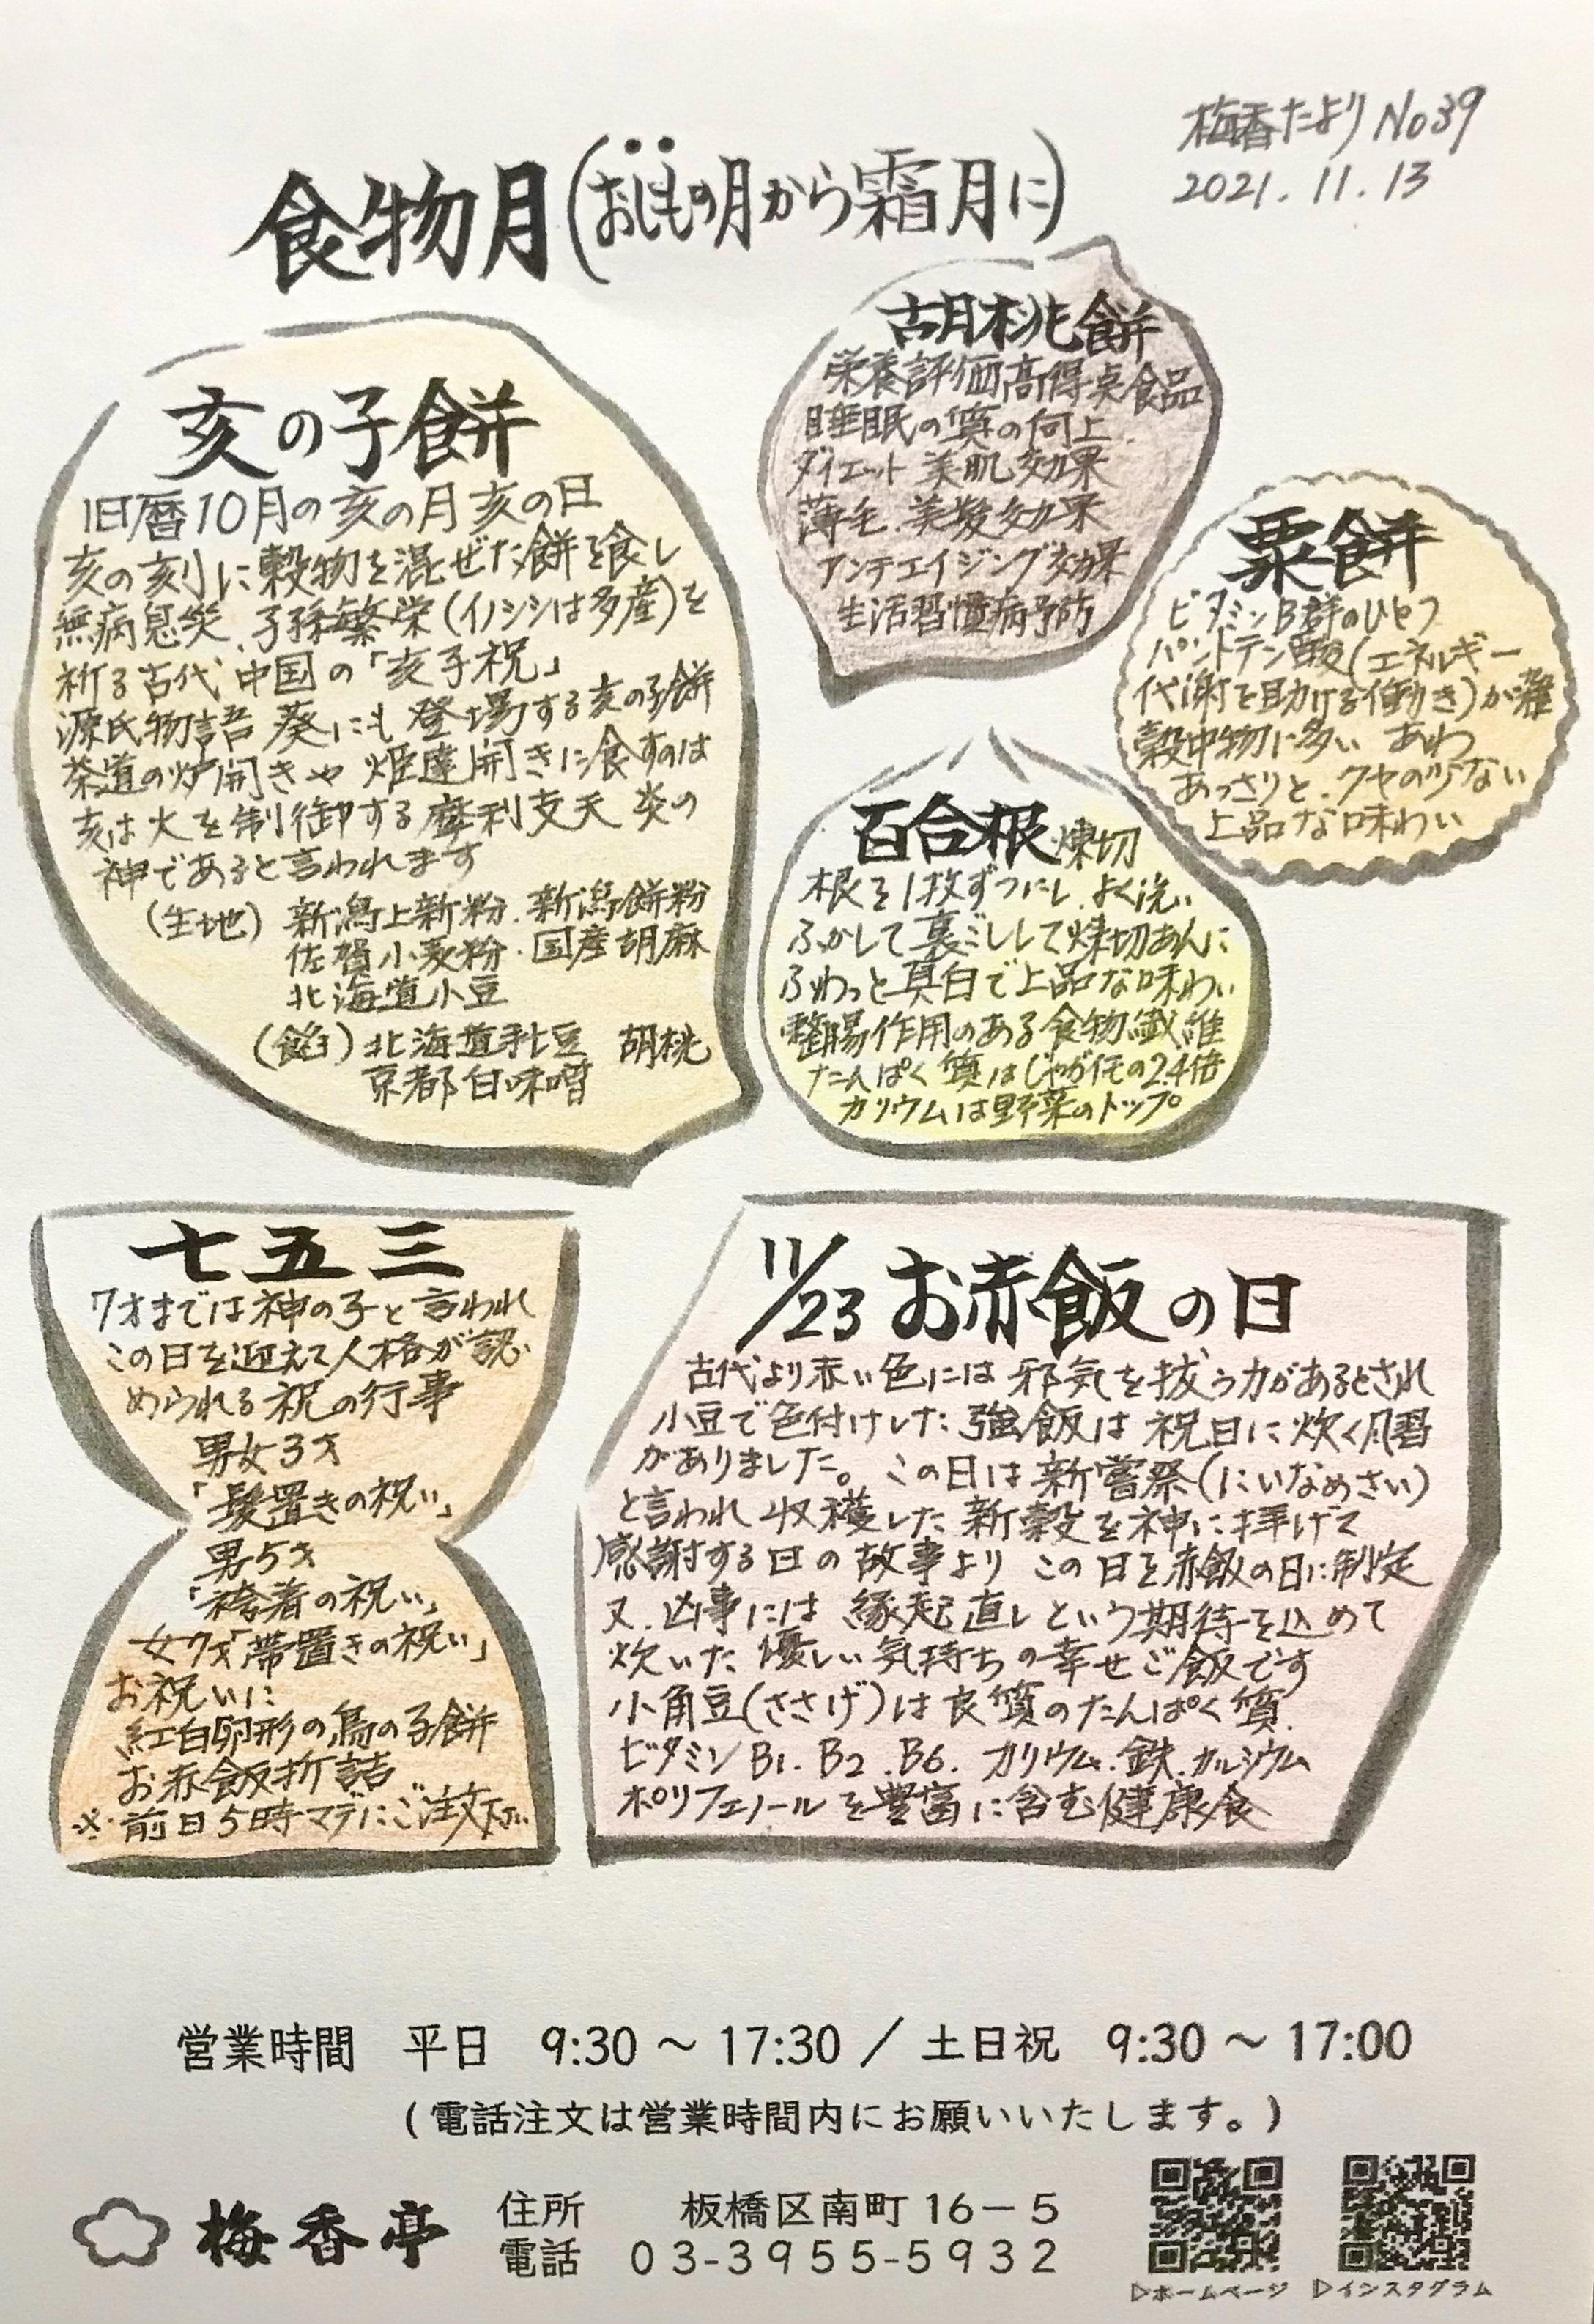 梅香たより No39
2021.11.13
食物月(おしもの月から霜月に)
亥の子餅
旧暦10月の亥の月亥の日
亥の刻に穀物を混ぜた餅を食し
無病息災、子孫繁栄(イノシシは多産)を
祈る古代中国の「亥子祝」
源氏物語 葵にも登場する亥の子餅
茶道の炉開きや 炬燵開きに食すのは
亥は火を制御する摩利支天 炎の
神であると言われます
(生地) 新潟上新粉.新潟餅粉
佐賀小麦粉.国産胡麻
北海道小豆
(餡) 北海道小豆 胡桃
京都白味噌
胡桃餅
栄養評価高得点食品
睡眠の質の向上.
ダイエット 美肌効果
薄毛.美髪効果
アンチエイジング効果
生活習慣病予防
粟餅
ビタミンB群のひとつ
パントテン酸(エネルギー
代謝を助ける働き)が雑
穀中物に多い あわ
あっさりと.クセの少ない
上品な味わい
百合根煉切
根を1枚ずつにし.よく洗い
ふかして裏ごしして煉切あんに
ふわっと真白で上品な味わい
整腸作用のある食物繊維
たんぱく質はじゃがイモの2.4倍
カリウムは野菜のトップ
七五三
7才までは神の子と言われ
この日を迎えて人格が認
められる祝の行事
男女3才
「髪置きの祝い」
男5才
「袴着の祝い」
女7才「帯置きの祝い」
お祝いに
紅白卵形の鳥の子餅
お赤飯折詰
※前日5時マデにご注文下さい
11/23 お赤飯の日
古代より赤い色には邪気を抜う力があるとされ
小豆で色付けした強飯は祝日に炊く風習
がありました。この日は新嘗祭(にいなめさい)
と言われ収穫した新穀を神に拝げて
感謝する日の故事より この日を赤飯の日に制定
又.凶事には縁起直しという期待を込めて
炊いた優しい気持ちの幸せご飯です
小角豆(ささげ)は良質のたんぱく質.
ビタミンB1.B2.B6.カリウム.鉄.カルシウム
ポリフェノールを豊富に含む健康食
営業時間 平日 9:30 ～ 17:30 / 土日祝 9:30 ～ 17:00
(電話注文は営業時間内にお願いいたします。)
梅香亭
住所 板橋区南町16－5
電話 03-3955-5932
▷ホームページ ▷インスタグラム